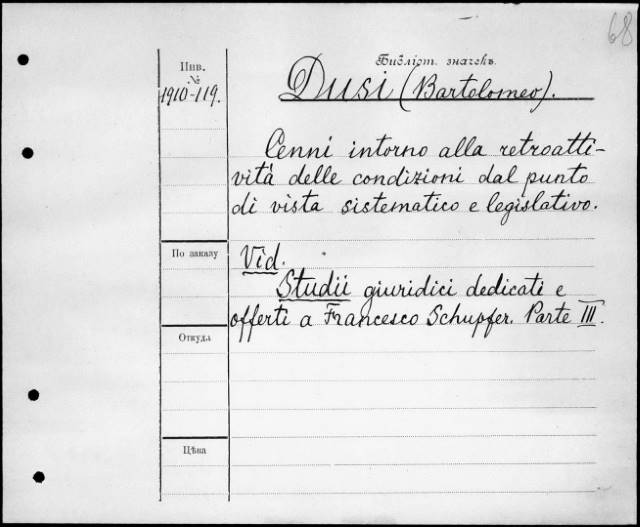 68
Библіот. значекъ.
Инв.
№
1910-119.
Dusi (Bartolomeo).
Cenni intorno alla retroatti-
vità delle condizioni dal punto
di vista sistematico e legislativo.
По заказу
Vid.
Studii giuridici dedicati e
offerti a Francesco Schupfer. Parte III.
Откуда
Цѣна